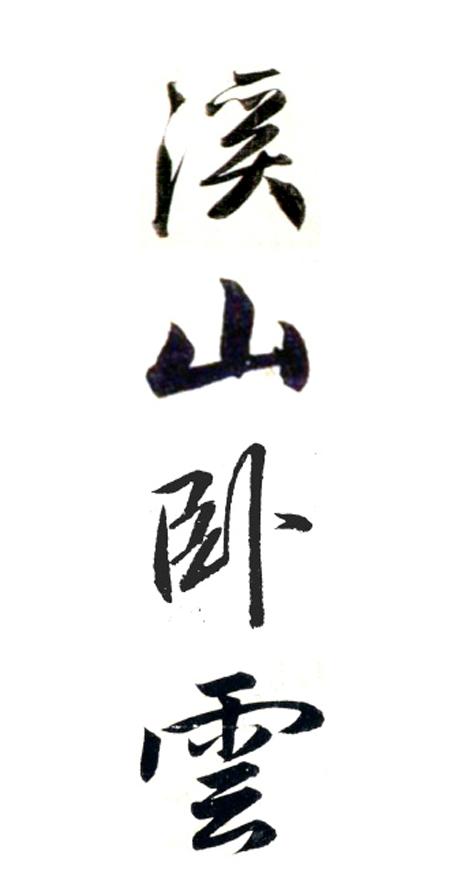 溪山卧雲